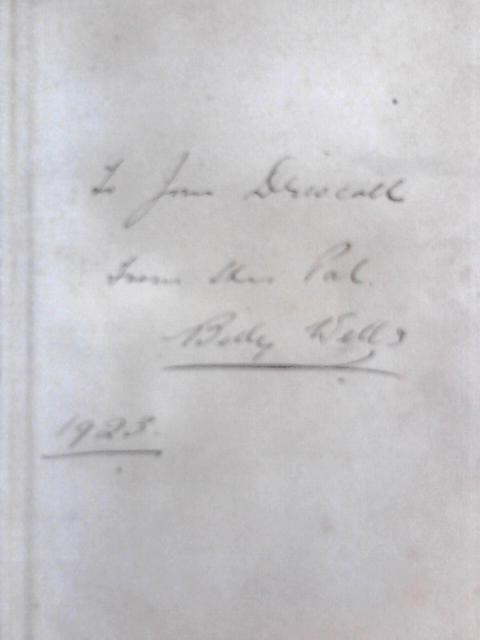 To Jim Driscoll
From His Pal.
Billy Wells
1923.